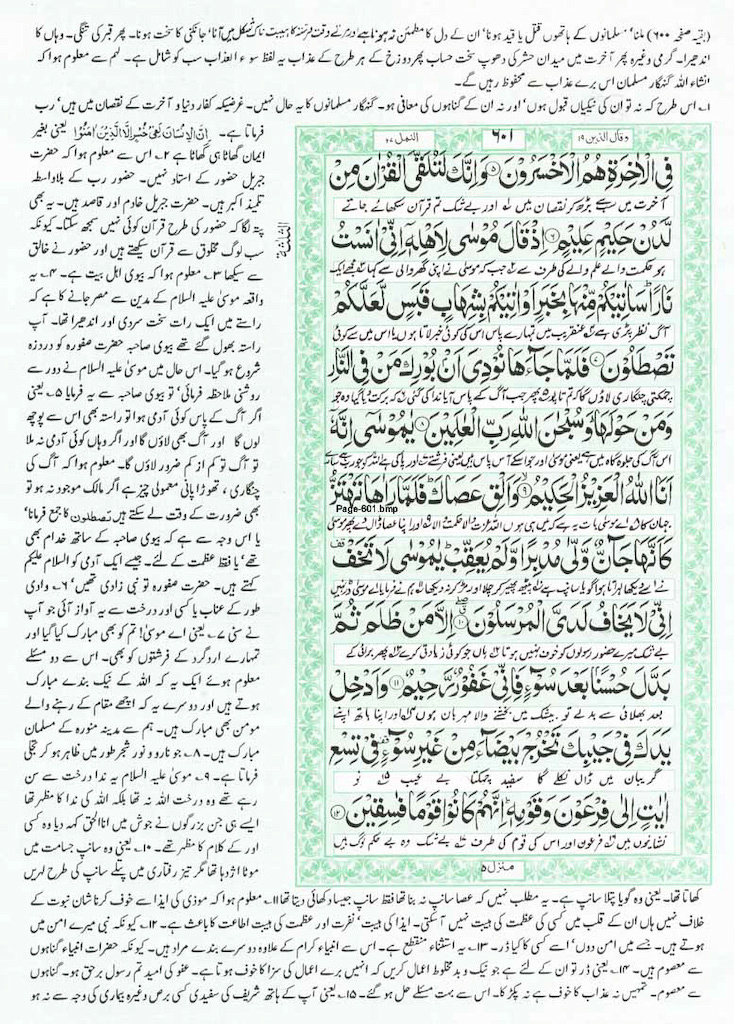 (بقیہ صفحہ ۶۰۰) مانا' مسلمانوں کے ہاتھوں قتل یا قید ہونا' ان کے دل کا مطمئن نہ ہونا جانکنی کا سخت ہونا۔ پھر قبر کی تنگی۔ وہاں کا
اندھیرا۔ گرمی وغیرہ پھر آخرت میں میدان حشر کی دھوپ سخت حساب پھر دوزخ کے ہر طرح کے عذاب یہ لفظ سوء العذاب سب کو شامل ہے۔ اس سے معلوم ہوا کہ
انشاء اللہ گنہگار مسلمان اس برے عذاب سے محفوظ رہیں گے۔
۱۔ اس طرح کہ نہ تو ان کی نیکیاں قبول ہوں' اور نہ ان کے گناہوں کی معافی ہو۔ گنہگار مسلمانوں کا یہ حال نہیں۔ غرضیکہ کفار دنیا و آخرت کے نقصان میں ہیں' رب
فرماتا ہے۔ اِنَّ الْاِنْسَانَ لَفِیْ خُسْرٍ اِلَّا الَّذِیْنَ اٰمَنُوْا یعنی بغیر
ایمان گھاٹا ہی گھاٹا ہے ۲۔ اس سے معلوم ہوا کہ حضرت
جبریل حضور کے استاد نہیں۔ حضور رب کے بلاواسطہ
تلمیذ اکبر ہیں۔ حضرت جبریل خادم اور قاصد ہیں۔ یہ بھی
پتہ لگا کہ حضور کی طرح قرآن کوئی نہیں سمجھ سکتا۔ کیونکہ
سب لوگ مخلوق سے قرآن سیکھتے ہیں اور حضور نے خالق
سے سیکھا ۳۔ معلوم ہوا کہ بیوی اہل بیت ہے۔ ۴۔ یہ
واقعہ موسیٰ علیہ السلام کے مدین سے مصر جانے کا ہے کہ
راستے میں ایک رات سخت سردی اور اندھیرا تھا۔ آپ
راستہ بھول گئے تھے بیوی صاحبہ حضرت صفورہ کو دردزہ
شروع ہو گیا۔ اس حال میں موسیٰ علیہ السلام نے دور سے
روشنی ملاحظہ فرمائی' تو بیوی صاحبہ سے یہ فرمایا ۵۔ یعنی
اگر آگ کے پاس کوئی آدمی ہوا تو راستہ بھی اس سے پوچھ
لوں گا اور آگ بھی لاؤں گا اور اگر وہاں کوئی آدمی نہ ملا
تو آگ تو کم از کم ضرور لاؤں گا۔ معلوم ہوا کہ آگ کی
چنگاری، تھوڑا پانی معمولی چیز ہے اگر مالک موجود نہ ہو تو
بھی ضرورت کے وقت لے سکتے ہیں تصطلون کا جمع فرمانا'
یا اس وجہ سے ہے کہ بیوی صاحبہ کے ساتھ خدام بھی
تھے' یا فقط عظمت کے لئے۔ جیسے ایک آدمی کو السلام علیکم
کہتے ہیں۔ حضرت صفورہ تو نبی زادی تھیں' ۶۔ وادی
طور کے عناب یا کسی اور درخت سے یہ آواز آئی جو آپ
نے سنی ۷۔ یعنی اے موسیٰ! تم کو بھی مبارک کیا گیا اور
تمہارے ارد گرد کے فرشتوں کو بھی۔ اس سے دو مسئلے
معلوم ہوئے ایک یہ کہ اللہ کے نیک بندے مبارک
ہوتے ہیں اور دوسرے یہ کہ اچھے مقام کے رہنے والے
مومن بھی مبارک ہیں۔ ہم سے مدینہ منورہ کے مسلمان
مبارک ہیں۔ ۸۔ جو نار و نور شجر طور میں ظاہر ہو کر تجلی
فرماتا ہے۔ ۹۔ موسیٰ علیہ السلام یہ ندا درخت سے سن
رہے تھے وہ درخت اللہ نہ تھا بلکہ اللہ کی ندا کا مظہر تھا
ایسے ہی جن بزرگوں نے جوش میں اناالحق کہہ دیا وہ کسی
اور کے کلام کا مظہر تھے۔ ۱۰۔ یعنی وہ سانپ جسامت میں
موٹا اژدہا تھا مگر تیز رفتاری میں پتلے سانپ کی طرح لہریں
وقال الذین ۱۹
۶۰۱
النمل ۲۷
فِی الْاٰخِرَةِ هُمُ الْاَخْسَرُوْنَ ۵ وَاِنَّكَ لَتُلَقَّی الْقُرْاٰنَ مِنْ
آخرت میں سب سے بڑھ کر نقصان میں اور بے شک تم قرآن سکھائے جاتے
لَّدُنْ حَكِیْمٍ عَلِیْمٍ ۶ اِذْ قَالَ مُوْسٰی لِاَهْلِهٖ اِنِّیْٓ اٰنَسْتُ
ہو حکمت والے علم والے کی طرف سے جب کہ موسیٰ نے اپنی گھر والی سے کہا مجھے ایک
نَارًا سَاٰتِیْكُمْ مِّنْهَا بِخَبَرٍ اَوْ اٰتِیْكُمْ بِشِهَابٍ قَبَسٍ لَّعَلَّكُمْ
آگ نظر پڑی ہے عنقریب میں تمہارے پاس اس کی کوئی خبر لاتا ہوں یا اس میں سے کوئی
تَصْطَلُوْنَ ۷ فَلَمَّا جَآءَهَا نُوْدِیَ اَنْ بُوْرِكَ مَنْ فِی النَّارِ
چمکتی چنگاری لاؤں گا کہ تم تاپو پھر جب آگ کے پاس آیا ندا کی گئی کہ برکت دیا گیا وہ جو
وَمَنْ حَوْلَهَا وَسُبْحٰنَ اللّٰهِ رَبِّ الْعٰلَمِیْنَ ۸ یٰمُوْسٰٓی اِنَّهٗٓ
اس آگ کی جلوہ گاہ میں ہے یعنی موسیٰ اور جو اسکے آس پاس ہیں یعنی فرشتے اور پاکی ہے اللہ کو جو رب ہے سارے
اَنَا اللّٰهُ الْعَزِیْزُ الْحَكِیْمُ ۹ وَاَلْقِ عَصَاكَ فَلَمَّا رَاٰهَا تَهْتَزُّ
Page-601.bmp
جہان کا اے موسیٰ بات یہ ہے کہ میں ہی ہوں اللہ عزت والا حکمت والا اور اپنا عصا ڈال دے پھر موسیٰ
كَاَنَّهَا جَآنٌّ وَّلّٰی مُدْبِرًا وَّلَمْ یُعَقِّبْ یٰمُوْسٰی لَا تَخَفْ
نے اسے دیکھا لہراتا ہوا گویا سانپ ہے پیٹھ پھیر کر چلا اور مڑ کر نہ دیکھا ہم نے فرمایا اے موسیٰ ڈر نہیں
اِنِّیْ لَا یَخَافُ لَدَیَّ الْمُرْسَلُوْنَ ۱۰ اِلَّا مَنْ ظَلَمَ ثُمَّ
بے شک میرے حضور رسولوں کو خوف نہیں ہوتا ہاں جو کوئی زیادتی کرے پھر برائی کے
بَدَّلَ حُسْنًۢا بَعْدَ سُوْٓءٍ فَاِنِّیْ غَفُوْرٌ رَّحِیْمٌ ۱۱ وَاَدْخِلْ
بعد بھلائی سے بدلے تو بیشک میں بخشنے والا مہربان ہوں اور اپنا ہاتھ اپنے
یَدَكَ فِیْ جَیْبِكَ تَخْرُجْ بَیْضَآءَ مِنْ غَیْرِ سُوْٓءٍ فِیْ تِسْعِ
گریبان میں ڈال نکلے گا سفید چمکتا بے عیب نو
اٰیٰتٍ اِلٰی فِرْعَوْنَ وَقَوْمِهٖ اِنَّهُمْ كَانُوْا قَوْمًا فٰسِقِیْنَ ۱۲
نشانیوں میں فرعون اور اس کی قوم کی طرف بے شک وہ بے حکم لوگ ہیں
منزل ۵
کھاتا تھا۔ یعنی وہ گویا پتلا سانپ ہے۔ یہ مطلب نہیں کہ عصا سانپ نہ بنا تھا فقط سانپ جیسا دکھائی دیتا تھا ۱۱۔ معلوم ہوا کہ موذی کی ایذا سے خوف کرنا شان نبوت کے
خلاف نہیں ہاں ان کے قلب میں کسی کی عظمت کی ہیبت نہیں آسکتی۔ ایذا کی ہیبت' نفرت اور عظمت کی ہیبت اطاعت کا باعث ہے۔ ۱۲۔ کیونکہ نبی میرے امن میں
ہوتے ہیں۔ جسے میں امن دوں' اسے کسی کا کیا ڈر۔ ۱۳۔ یہ استثناء منقطع ہے۔ اس سے انبیاء کرام کے علاوہ دوسرے بندے مراد ہیں۔ کیونکہ حضرات انبیاء گناہوں
سے معصوم ہیں۔ ۱۴۔ یعنی ڈر تو ان کے لئے ہے جو نیک و بد مخلوط اعمال کریں کہ انہیں برے اعمال کی سزا کا خوف ہوتا ہے۔ عفو کی امید تم رسول برحق ہو۔ گناہوں
سے معصوم۔ تمہیں نہ عذاب کا خوف ہے نہ پکڑ کا۔ اس سے بہت مسئلے حل ہو گئے۔ ۱۵۔ یعنی آپ کے ہاتھ شریف کی سفیدی کسی برص وغیرہ بیماری کی وجہ سے نہ ہو